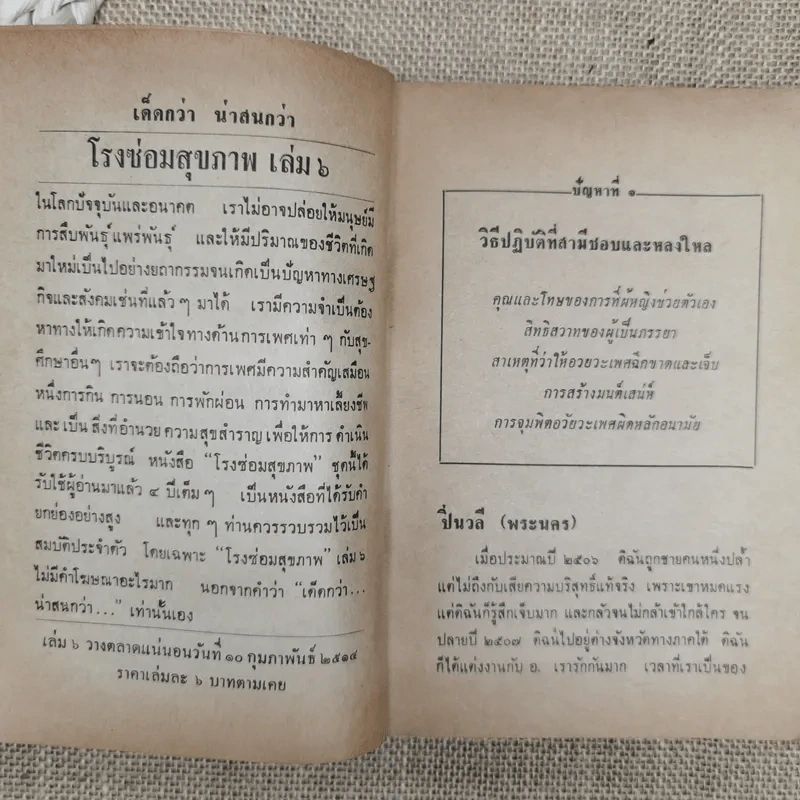 เด็ดกว่า น่าสนกว่า
โรงซ่อมสุขภาพ เล่ม ๖
ในโลกปัจจุบันและอนาคต เราไม่อาจปล่อยให้มนุษย์มี
การสืบพันธุ์แพร่พันธุ์ และให้มีปริมาณของชีวิตที่เกิด
มาใหม่เป็นไปอย่างยถากรรมจนเกิดเป็นปัญหาทางเศรษฐ
กิจและสังคมเช่นที่แล้ว ๆ มาได้ เรามีความจำเป็นต้อง
หาทางให้เกิดความเข้าใจทางด้านการเพศเท่า ๆ กับสุข-
ศึกษาอื่นๆ เราจะต้องถือว่าการเพศมีความสำคัญเสมือน
หนึ่งการกิน การนอน การพักผ่อน การทำมาหาเลี้ยงชีพ
และ เป็น สิ่งที่อำนวย ความ สุขสำราญ เพื่อให้การ ดำเนิน
ชีวิตครบบริบูรณ์ หนังสือ “โรงซ่อมสุขภาพ” ชุดนี้ได้
รับใช้ผู้อ่านมาแล้ว ๔ ปีเต็ม ๆ เป็นหนังสือที่ได้รับคำ
ยกย่องอย่างสูง และทุก ๆ ท่านควรรวบรวมไว้เป็น
สมบัติประจำตัว โดยเฉพาะ “โรงซ่อมสุขภาพ” เล่ม ๖
ไม่มีคำโฆษณาอะไรมาก นอกจากคำว่า “เด็ดกว่า...
น่าสนกว่า...” เท่านั้นเอง
เล่ม ๖ วางตลาดแน่นอนวันที่ ๑๐ กุมภาพันธ์ ๒๕๑๔
ราคาเล่มละ ๖ บาทตามเคย
ปัญหาที่ ๑
วิธีปฏิบัติที่สามีชอบและหลงใหล
คุณและโทษของการที่ผู้หญิงช่วยตัวเอง
สิทธิสวาทของผู้เป็นภรรยา
สาเหตุที่ว่าให้อวยวะเพศฉีกขาดและเจ็บ
การสร้างมนต์เสน่ห์
การจุมพิตอวัยวะเพศผิดหลักอนามัย
ปิ่นวลี (พระนคร)
เมื่อประมาณปี ๒๕๐๖ ดิฉันถูกชายคนหนึ่งปล้ำ
แต่ไม่ถึงกับเสียความบริสุทธิ์แท้จริง เพราะเขาหมดแรง
แต่ดิฉันก็รู้สึกเจ็บมาก และกลัวจนไม่กล้าเข้าใกล้ใคร จน
ปลายปี ๒๕๐๗ ดิฉันไปอยู่ต่างจังหวัดทางภาคใต้ ดิฉัน
ก็ได้แต่งงานกับ อ. เรารักกันมาก เวลาที่เราเป็นของ